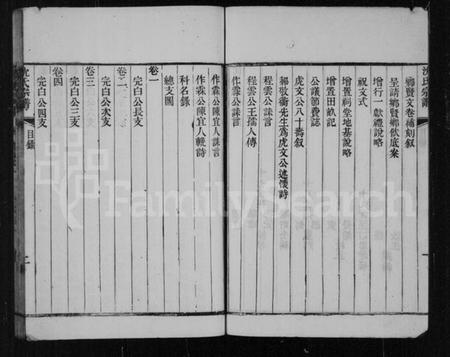 沈氏宗譜
鄉賢文卷補刻叙
呈請鄉賢鄉飲底案
增行一獻禮說略
祝文式
增置祠堂地基說略
增置田畝記
公議節費誌
虎文公八十壽叙
程雲公王孺人傳
程雲公誄言
作霖公誄言
作霖公陳宜人誄言
作霖公陳宜人輓詩
科名錄
總支圖
卷一
完白公長支
卷二
完白公次支
卷三
完白公三支
卷四
完白公四支
沈氏宗譜
目錄
二
FamilySearch